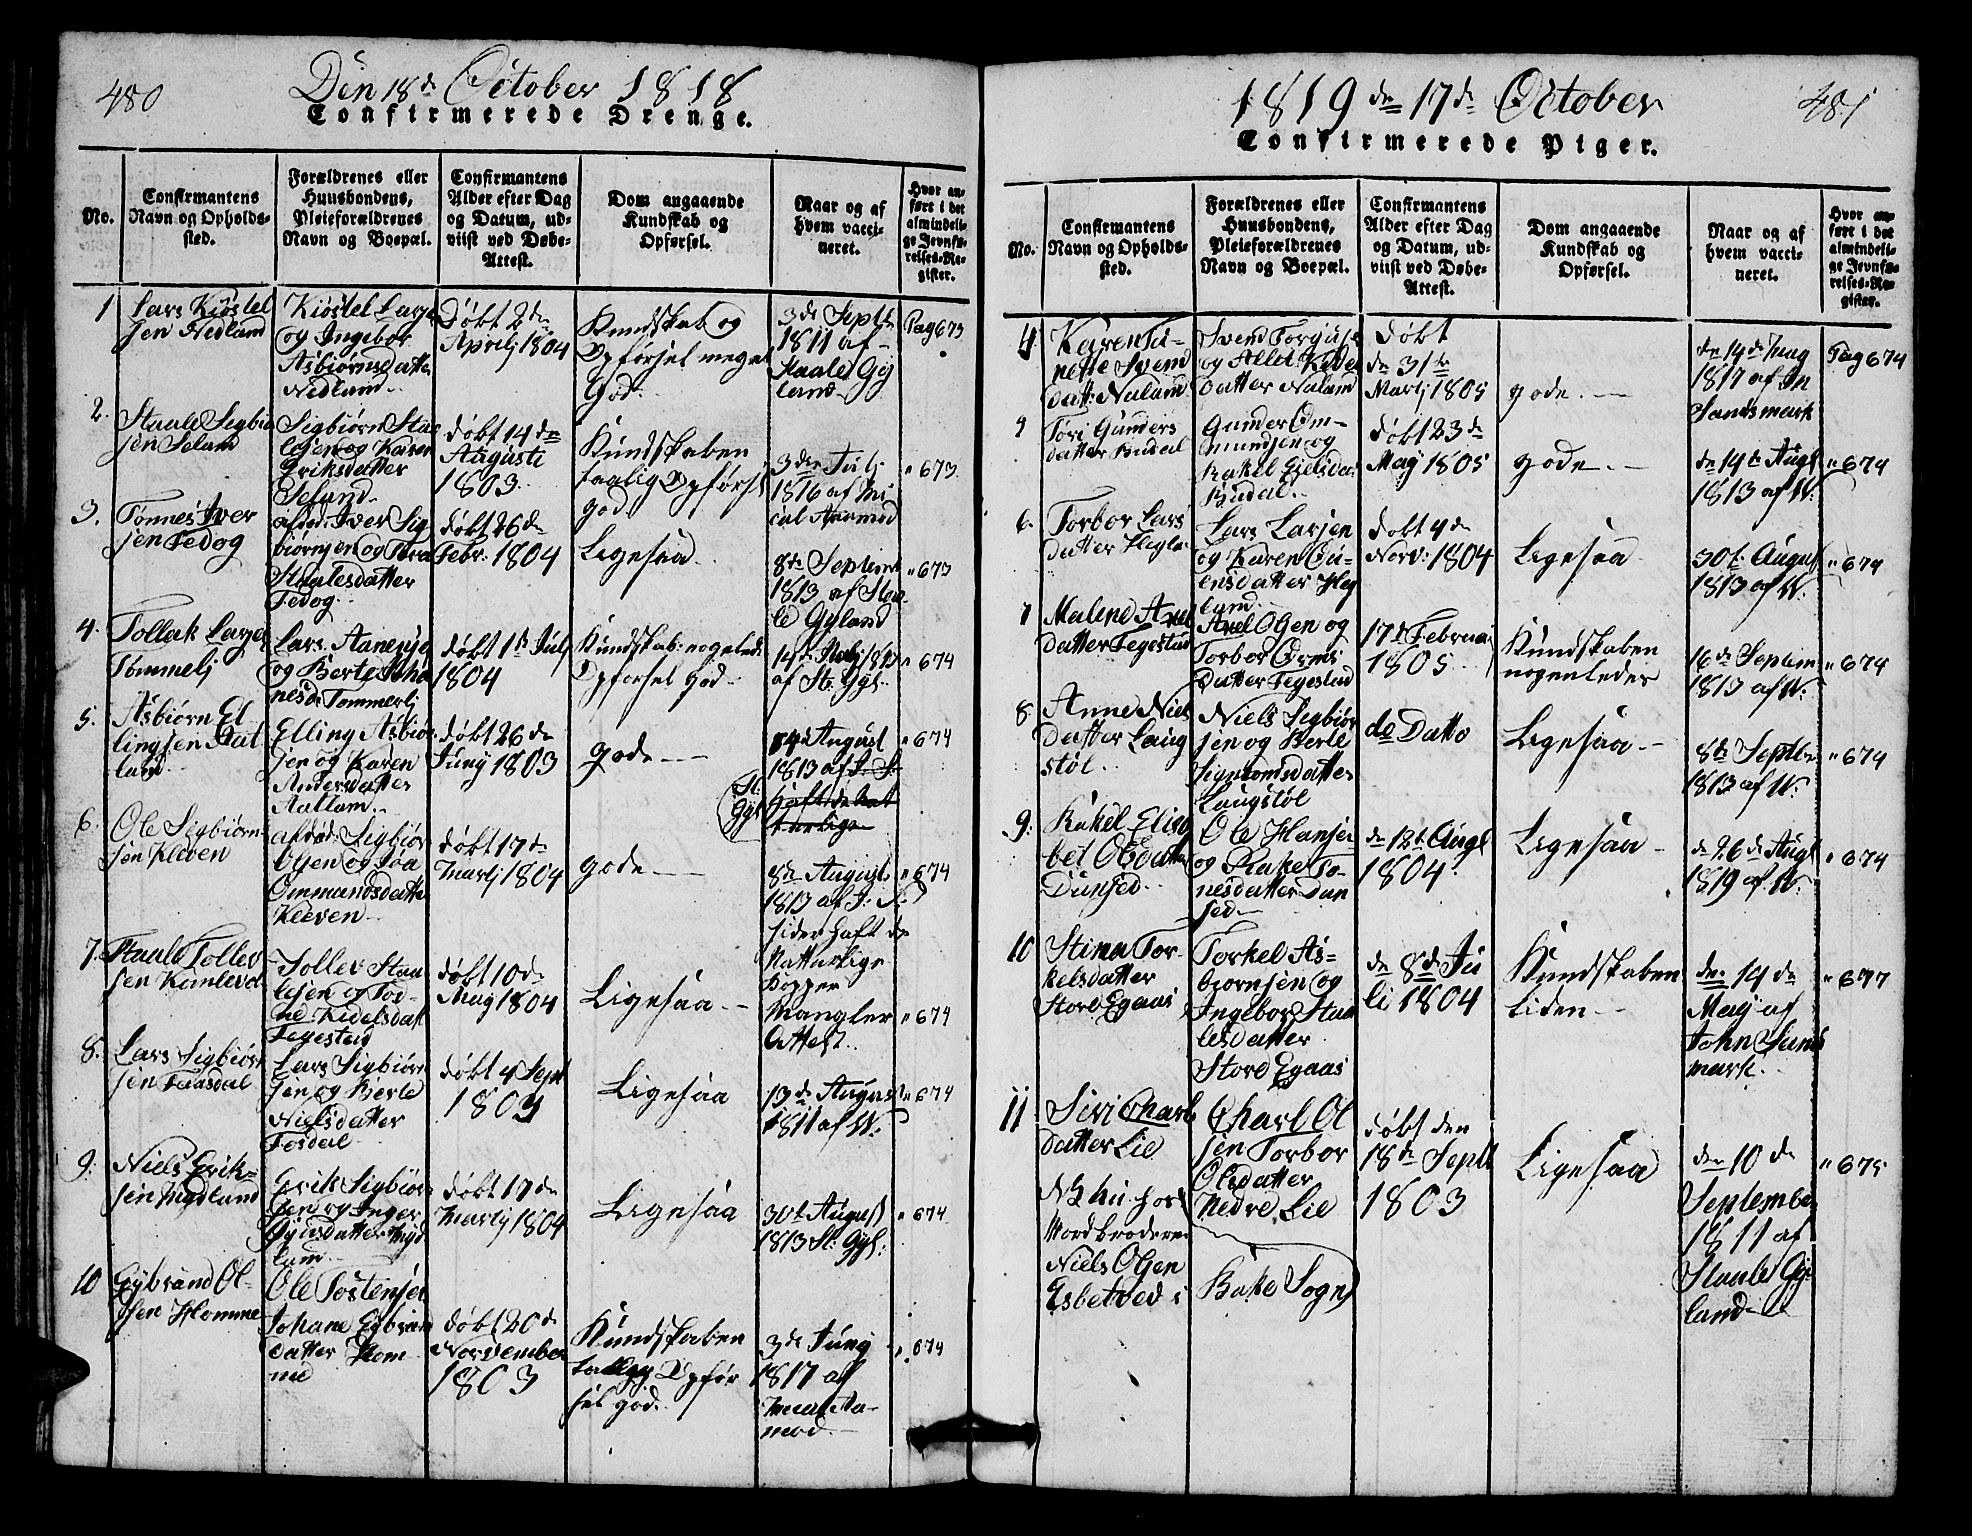 480
Den 18de October 1818
Confirmerede Drenge.
No.
Confirmantens
Navn og Opholds-
sted.
Forældrenes eller
Huusbondens,
Pleieforældrenes
Navn og Boepæl.
Confirmantens
Alder efter Dag
og Datum, ud-
viist ved Døbe-
Attest.
Dom angaaende
Kundskab og
Opførsel.
Naar og af
hvem vacci-
neret.
Hvor an-
ført i det
almindeli-
ge Jevnfø-
relses-Re-
gister.
1
Lars Kiöstel
sen Nedlam
Kiöstel Larse
og Ingebor
Asbiörnsdatter
Nedlam
Døbt 2de
Aprilj 1804
Kundskab og
Opförsel meget
God.
3de Septb
1811 af
Staale Gy
land
Pag 673
2.
Staale Sigbiö
sen Selam
Sigbiörn Staa
lesen og Karen
Eriksdatter
Selund
døbt 14de
Augusti
1803.
Kundskaben
taalig Opförsel
god.
3die Julj
1816 af Mi
cal Aamod
" 673
3.
Tønnes Iver
sen Fedog
afdød: Iver Sig
biörnsen og Tora
Staalesdatter
Fedog
døbt 26de
Febr. 1804
Ligesaa
8de Septemr
1813 af Staa
le Gyland
" 673
4.
Tollak Larse
Tømmelj
Lars Aanensje
og Berte Tho
nesd: Tommerlj
døbt 1te July
1804
Kundskab: nogeled:
Opförsel god
14de Maj 1813
af St. Gyl.
" 674
5.
Asbiörn El
lingsen Aat
lam
Elling Asbiör
sen og Karen
Andersdatter
Aatlam
døbt 26de
Juny 1803
gode
14de August
1813 af J. S.
St.
Gyl
haft de Nat
turlige
" 674
6.
Ole Sigbiörn
sen Kleven
afdød: Sigbiör
Olsen og Siaa
Ommundsdatte
Kleven
døbt 17de
Martj 1804
gode
8de August
1813 af J: S:
siden haft de
Natturlige
Kopper
Mangler
Attest.
" 674
7.
Staale Tollev
sen Komlevol
Tollev Staa
lesen og Tor
ne Kidelsdat
Fegestad
døbt 10de
May 1804
Ligesaa
" 674
8.
Lars Sigbiör
sen Faasdal
Lars Sigbiörn
sen og Berte
Nielsdatter
Fosdal
døbt 4 Sept
1803
Ligesaa
13de August
1811 af W.
" 674
9.
Niels Erik
sen Mydland
Erik Sigbiör
sen og Inger
Gyidsdatter Myd
lam
døbt 17de
Martj 1804
Ligesaa
30te August
1813 St: Gyl:
" 674
10
Eybrand Ol
sen Homme
Ole Tostensen
Johane Eybran
datter Hom
me
døbt 20de
November
1803
Kundskaben
taalig Opför
sel god.
3de Juny
1817 af
Mical Aa-
mod
" 674
481
1819 den 17de October
Confirmerede Piger.
No.
Confirmantens
Navn og Opholds-
sted.
Forældrenes eller
Huusbondens,
Pleieforældrenes
Navn og Boepæl.
Confirmantens
Alder efter Dag
og Datum, ud-
viist ved Døbe-
Attest.
Dom angaaende
Kundskab og
Opførsel.
Naar og af
hvem vacci-
neret.
Hvor an-
ført i det
almindeli-
ge Jevnfø-
relses-Re-
gister.
4
Karen Si-
nette Svend
dat: Nulam
Svend Torguse
og Allet Kidel
datter Nulam
døbt
den 31te
Martj 1805
gode.
den 14de Juny
1817 af Jn
Sandsmark
Pag 674
Töri Gunders
datter Budal
Gunder Om-
mundsen og
Rakel Ejelsda:
Budal.
døbt 23de
Maj 1805
gode.
den 14te Augl
1813 af W.
" 674
6.
Torbor Lars
datter Hegla
Lars Larsen
og Karen Ou-
ensdatter Heg
lam
døbt 4de
Nov: 1804
Ligesaa
30te August
1813 af W.
" 674
7
Malene Axel
datter Fegestad
Axel Olsen og
Torbor Orms
datter Fegestad
17de Februai
1805
Kundskaben
nogenledes
16de Septem
1813 af W:
" 674
8.
Anne Niels
datter Laug
støl
Niels Sigbiör
sen og Berte
Sigtomsdatter
Laugstöl
de Datto
Ligesaa
8de Septbr
1813 af W.
" 674
9.
Rakel Elisa
bet Olsdatte
Dunsed
Ole Hansen
og Rakel To-
nesdatter Dun
sed
de 12te Augl
1804
Ligesaa
de 26de Augl
1819 af W:
" 674
10
Stina Tor-
kelsdatter
Store Egaas
Torkel As-
biornsen og
Ingebor Staa
lesdatter
Store Egaas
den 8de Ju
li 1804
Kundskaben
liden
den 14de
Maj af
John Sands
mark
" 677
11
Siri Charls
datter Lie
Charl Ol
sen Torbor
Olsdatter
Nedre Lie
døbt den
18de Septb
1803
Ligesaa
den 10de
September
1811 af
Staale Gy
land
" 675
NB hu hos
Mordbroderen
Niels Olsen
Esbetved i
Bake Sogn